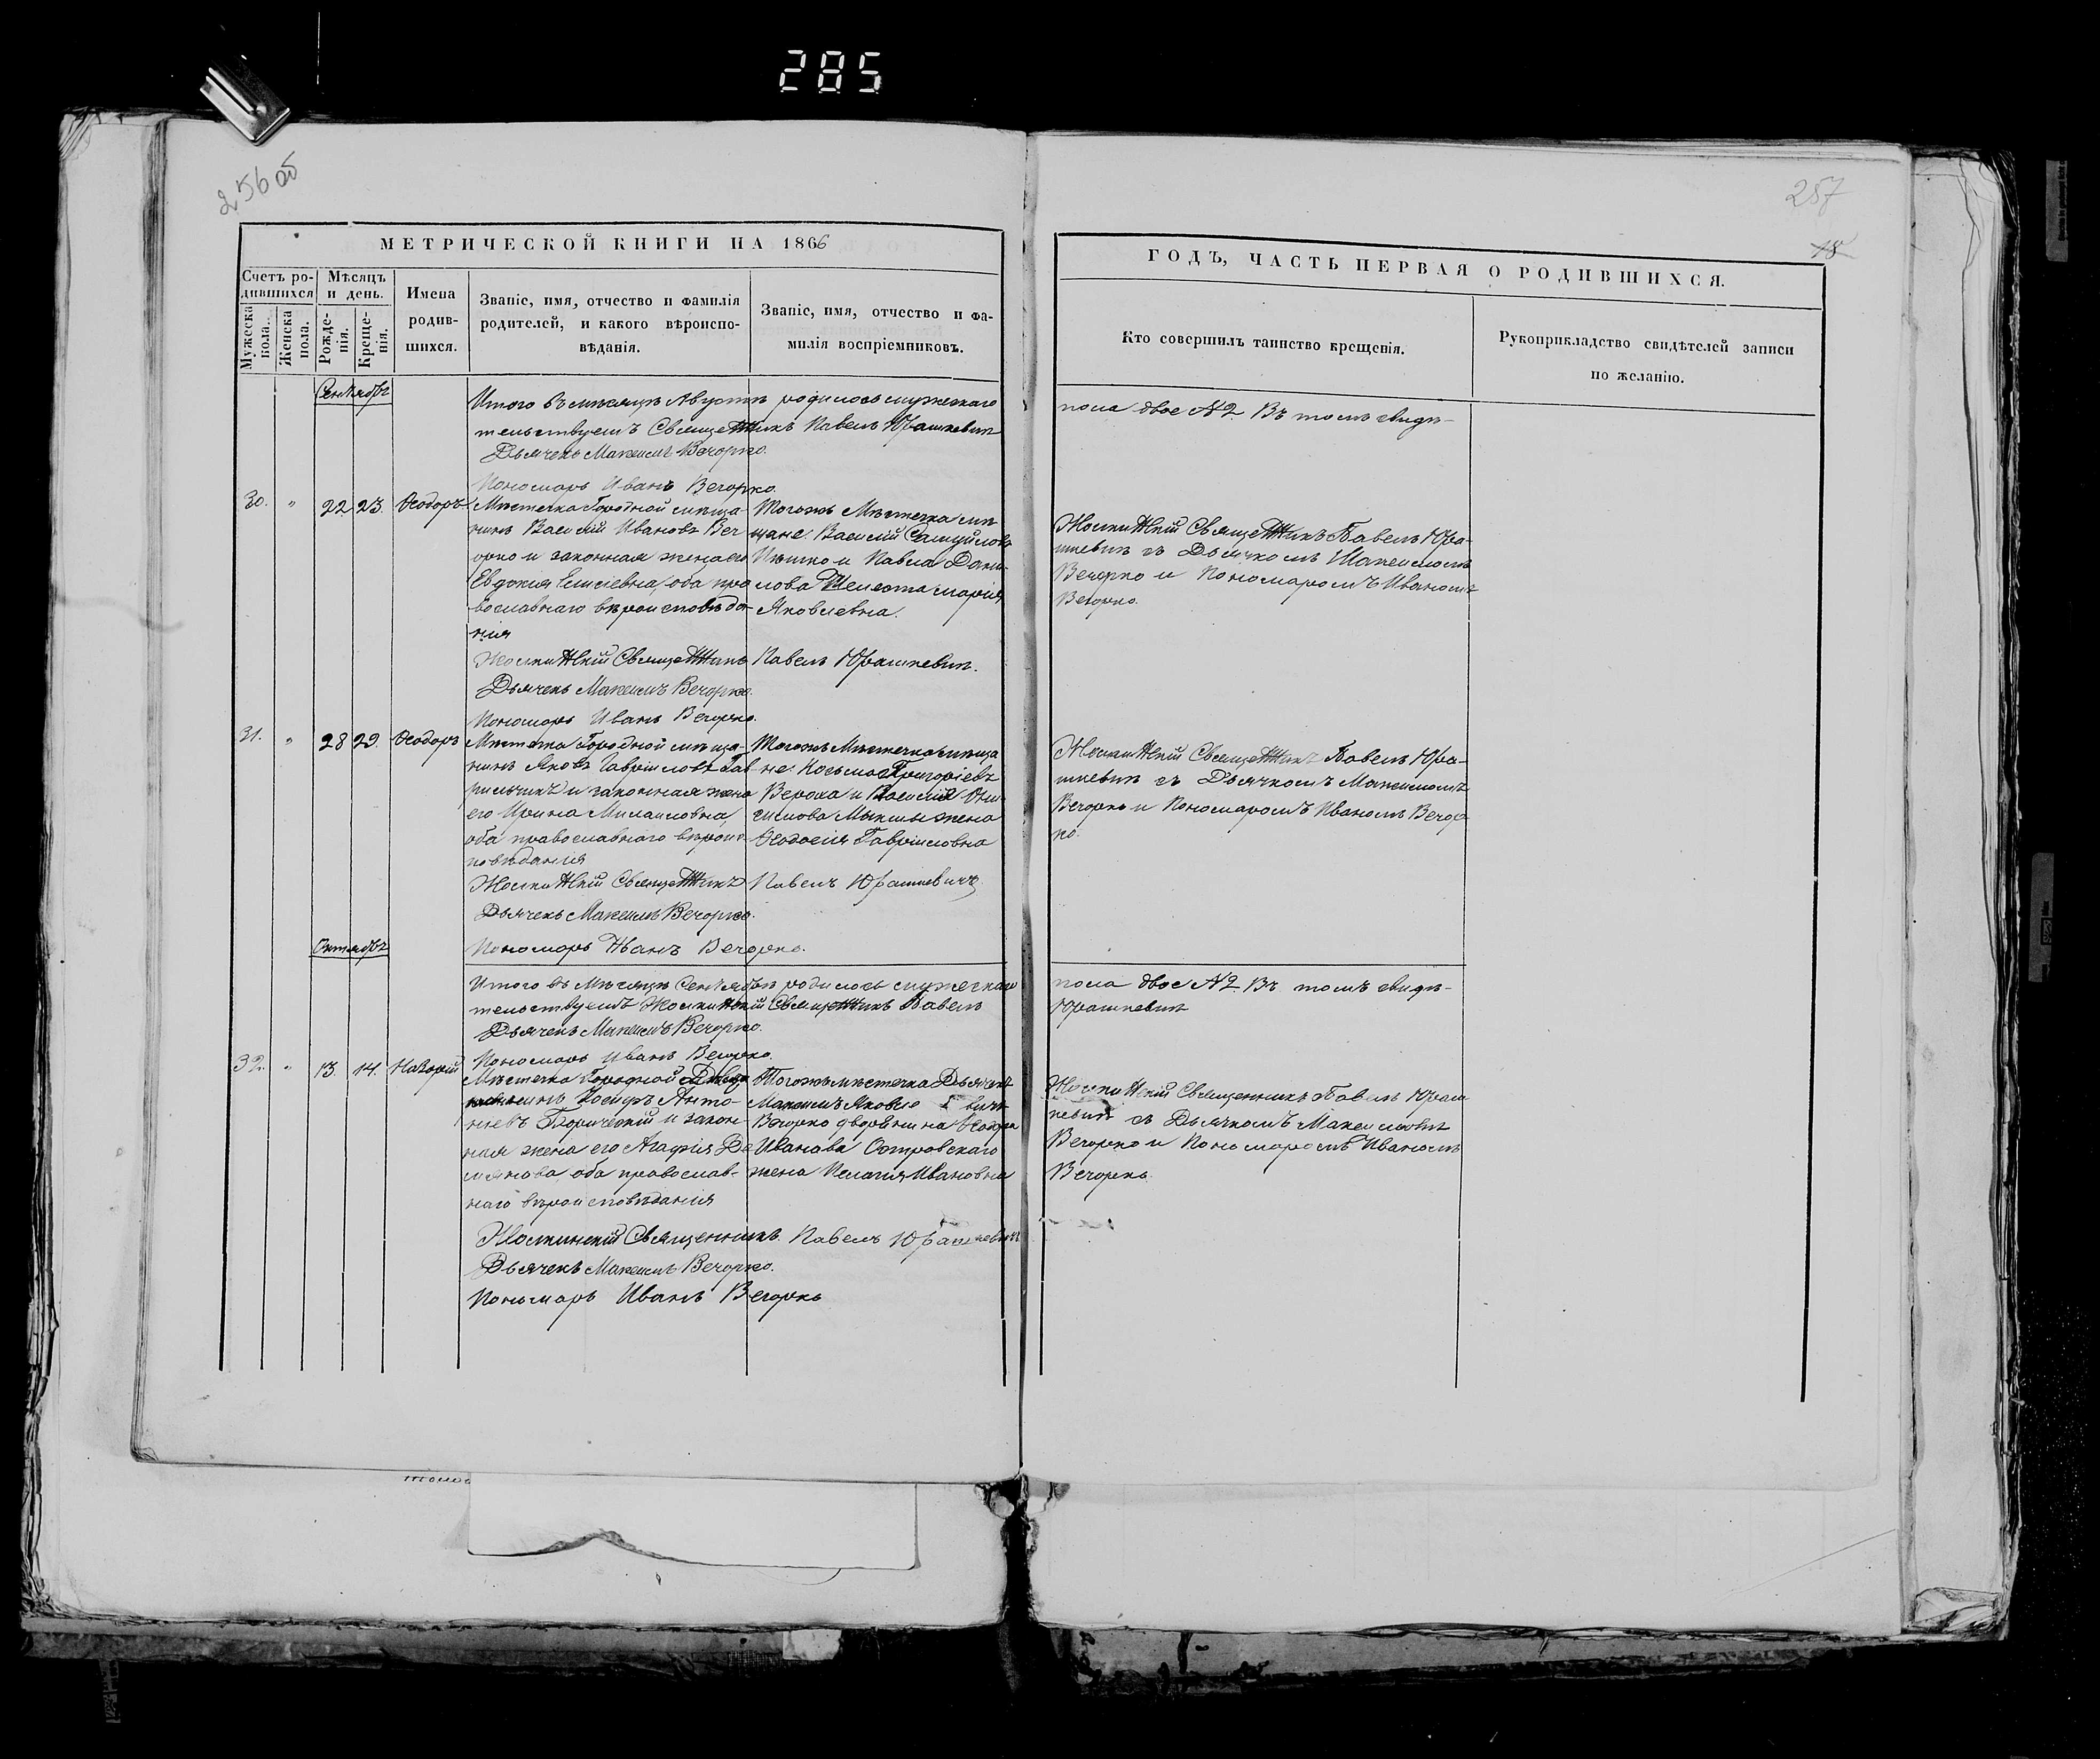 285
256 об
257
18
МЕТРИЧЕСКОЙ КНИГИ НА 1866
ГОДЪ, ЧАСТЬ ПЕРВАЯ О РОДИВШИХСЯ.
Счетъ ро-
дившихся
Мужеска
пола.
Женска
пола.
Мѣсяцъ
и день.
Рожде-
нія.
Креще-
нія.
Имена
родив-
шихся.
Званіе, имя, отчество и фамилія
родителей, и какого вѣроиспо-
вѣданія.
Званіе, имя, отчество и фа-
милія воспріемниковъ.
Кто совершилъ таинство крещенія.
Рукоприкладство свидѣтелей записи
по желанію.
Сентябрь
Итого въ мѣсяцѣ Августѣ родилось мужескаго
пола двое №2. Въ томъ свидѣ-
тельствуемъ Священникъ Павелъ Юрашкевичъ
Дьячекъ Максимъ Вечорко.
Пономарь Иванъ Вечорко.
30. " 22 23. Ѳеодоръ
Мѣстечка Городной мѣща-
нинъ Василій Ивановъ Веч
орко и законная жена его
Евдокія Елисіевна, оба пра
вославнаго вѣроисповѣда-
нія
Тогожъ Мѣстечка мѣ
щане: Василій Самуйловъ
и Павла Дани-
лова Шелеста Марія
Яковлевна.
Священникъ Павелъ Юра-
шкевичъ съ Дьячкомъ Максимомъ
Вечорко и Пономаромъ Иваномъ
Вечорко.
Священникъ Павелъ Юрашкевичъ.
Дьячекъ Максимъ Вечорко.
Пономарь Иванъ Вечорко.
31. " 28 29. Ѳеодоръ
Мѣстечка Городной мѣща-
нинъ Яковъ Гавріиловъ Гав-
рильчикъ и законная жена
его Ирина Михаиловна,
оба православнаго вѣроис-
повѣданія
Тогожъ Мѣстечка мѣща
не: Косьма Григоріевъ
Вероха и Василія Они-
симова жена
Ѳеодосія Гавріиловна
Священникъ Павелъ Юра-
шкевичъ съ Дьячкомъ Максимомъ
Вечорко и Пономаромъ Иваномъ Вечор
ко.
Священникъ Павелъ Юрашкевичъ.
Дьячекъ Максимъ Вечорко.
Октябрь
Пономарь Иванъ Вечорко.
Итого въ Мѣсяцѣ Сентябрѣ родилось мужескаго
пола двое №2. Въ томъ свидѣ-
тельствуемъ Священникъ Павелъ
Юрашкевичъ
Дьячекъ Максимъ Вечорко.
Пономарь Иванъ Вечорко.
32. " 13. 14. Назарій
Мѣстечка Городной
Іосифъ Анто-
ніевъ Боричевскій и закон-
ная жена его Агафія Да
міянова, оба православ-
наго вѣроисповѣданія
Тогожъ мѣстечка Дьячекъ
Максимъ Яковле вичъ
Вечорко дворянина
Иванова Островскаго
жена Пелагія Ивановна
Священникъ Павелъ Юраш
кевичъ съ Дьячкомъ Максимомъ
Вечорко и Пономаромъ Иваномъ
Вечорко.
Священникъ Павелъ Юрашкевичъ
Дьячекъ Максимъ Вечорко.
Пономарь Иванъ Вечорко